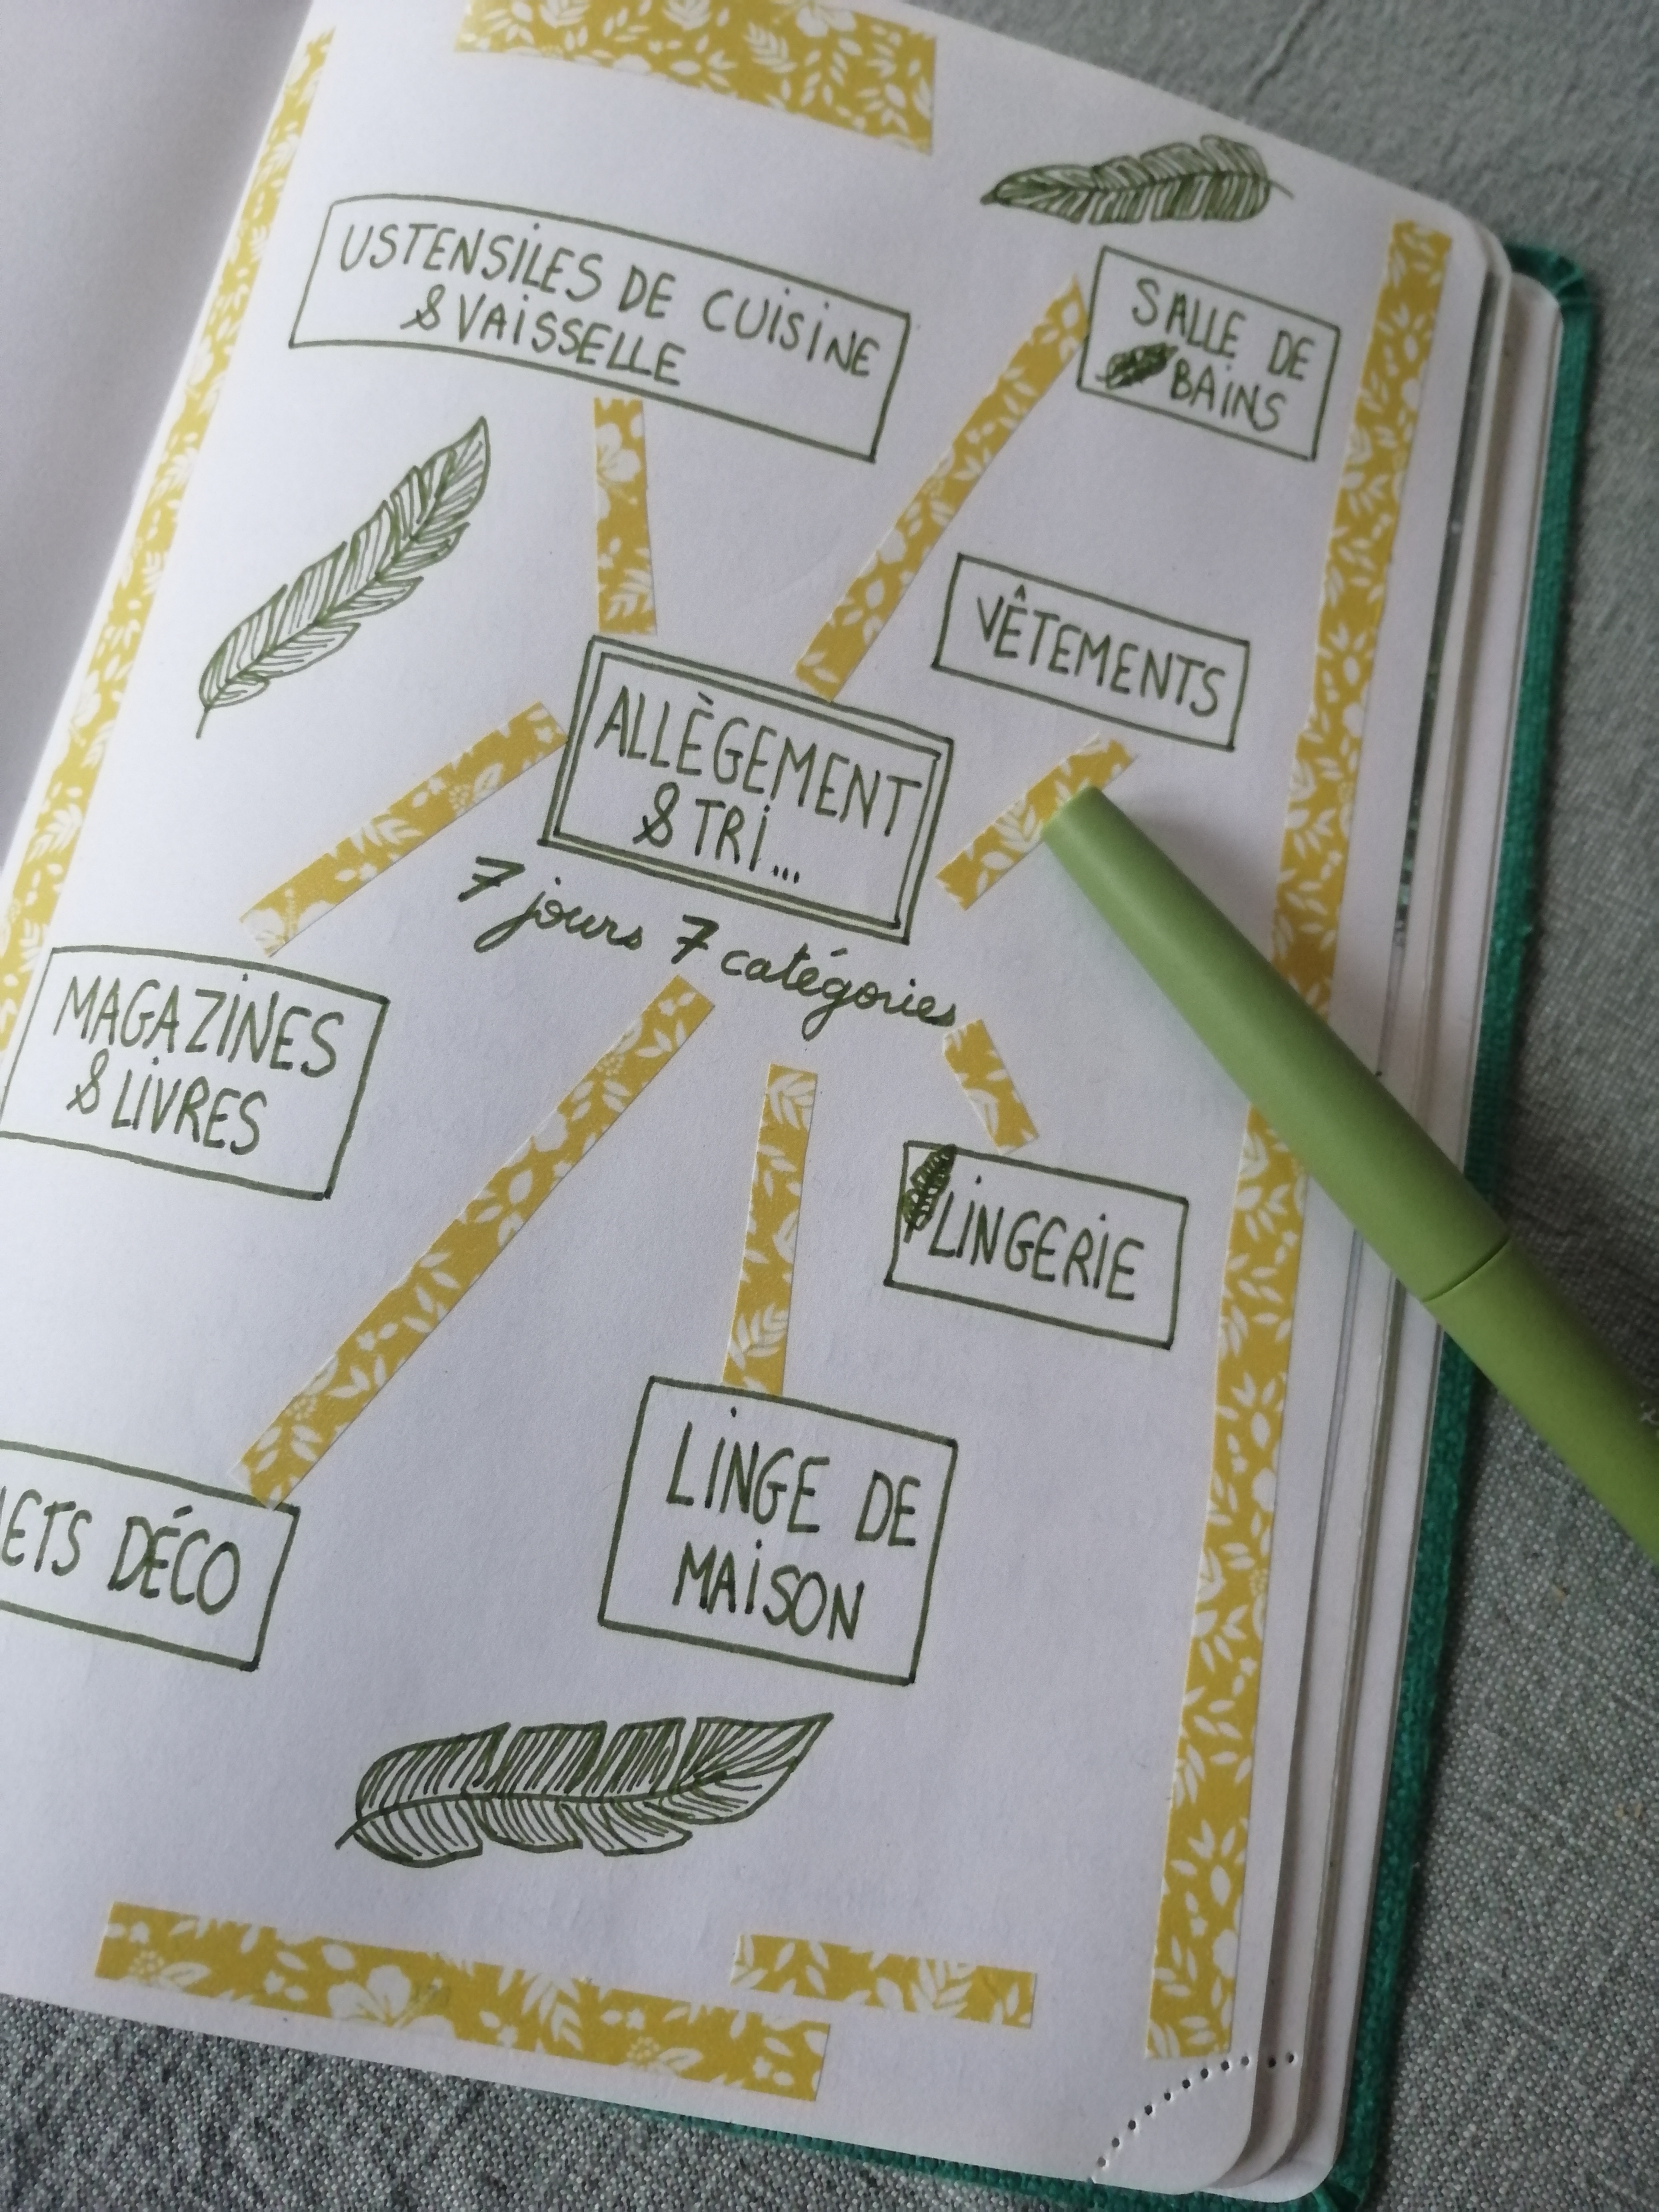 USTENSILES DE CUISINE
& VAISSELLE
SALLE DE
BAINS
VÊTEMENTS
ALLÈGEMENT
& TRI...
7 jours 7 catégories
MAGAZINES
& LIVRES
LINGERIE
LINGE DE
MAISON
DÉCO